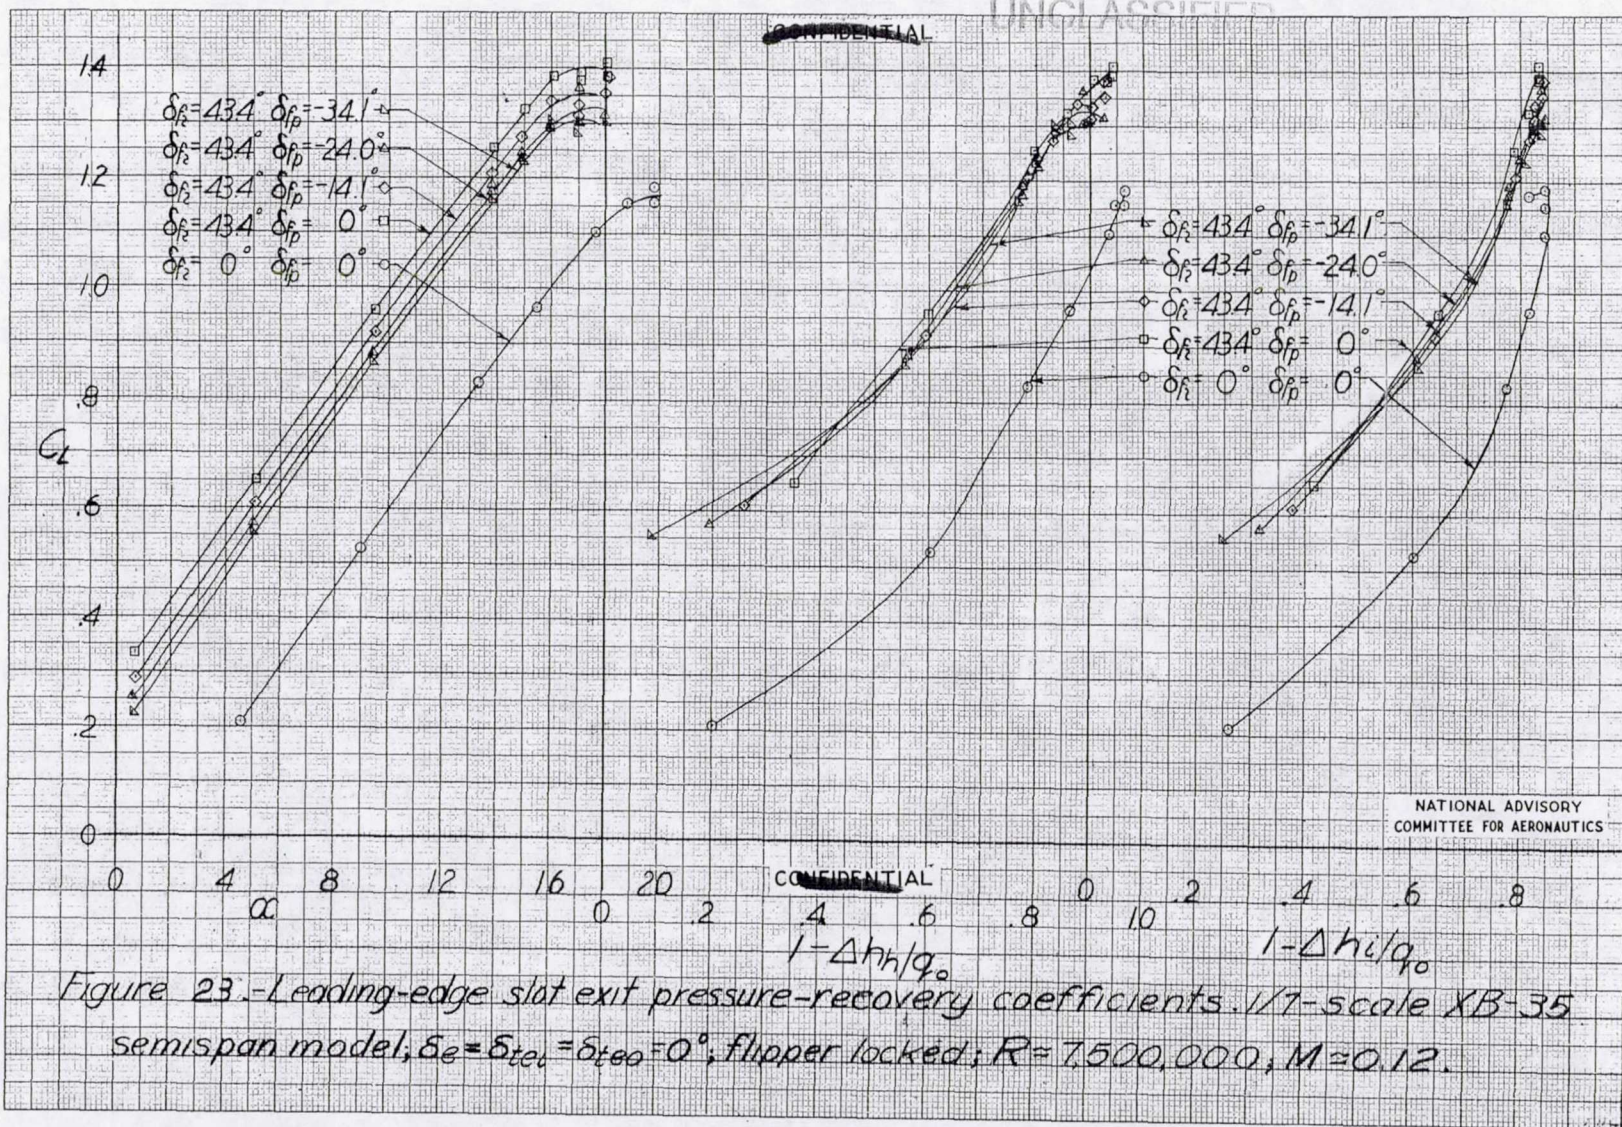 UNCLASSIFIED
CONFIDENTIAL
1.4
1.2
1.0
.8
C_L
.6
.4
.2
0
δf₂=43.4° δfp=-34.1°
δf₂=43.4° δfp=-24.0°
δf₂=43.4° δfp=-14.1°
δf₂=43.4° δfp= 0°
δf₂= 0° δfp= 0°
δf₂=43.4° δfp=-34.1°
δf₂=43.4° δfp=-24.0°
δf₂=43.4° δfp=-14.1°
δf₂=43.4° δfp= 0°
δf₂= 0° δfp= 0°
NATIONAL ADVISORY
COMMITTEE FOR AERONAUTICS
0 4 8 12 16 20
α
CONFIDENTIAL
0 .2 .4 .6 .8 1.0
1-Δhh/q₀
0 .2 .4 .6 .8
1-Δhi/q₀
Figure 23.-Leading-edge slot exit pressure-recovery coefficients. 1/7-scale XB-35
semispan model; δe=δtei=δteo=0°; flipper locked; R≈7,500,000; M≈0.12.